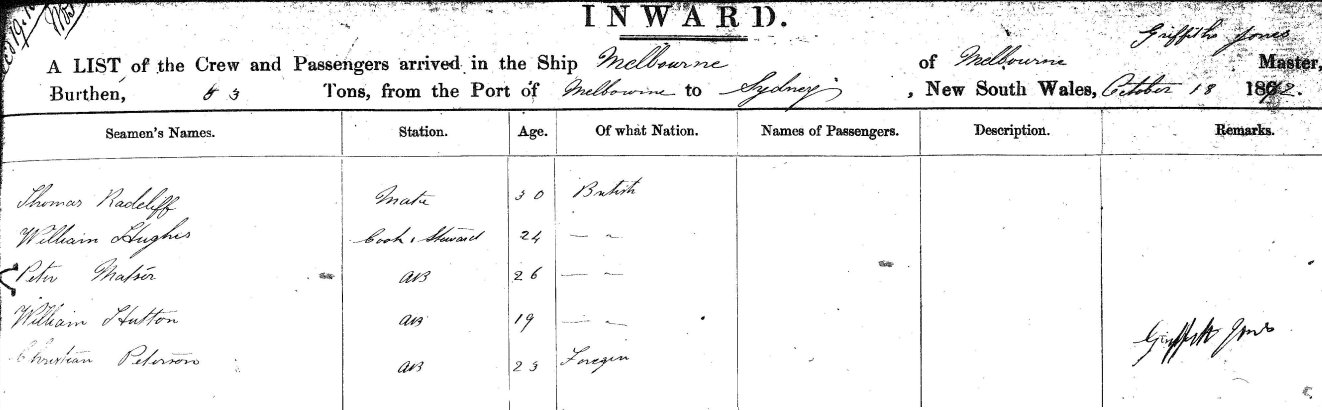 INWARD.
Griffiths Jones
A LIST of the Crew and Passengers arrived in the Ship Melbourne of Melbourne Master,
Burthen, 83 Tons, from the Port of Melbourne to Sydney, New South Wales, October 18 1862.
Seamen's Names. Station. Age. Of what Nation. Names of Passengers. Description. Remarks.
Thomas Radcliff Mate 30 British
William Hughes Cook & Steward 24 — —
Peter AB 26 — —
William Hutton AB 19 — —
Christian Peterson AB 23 Foregin
Griffith Jones